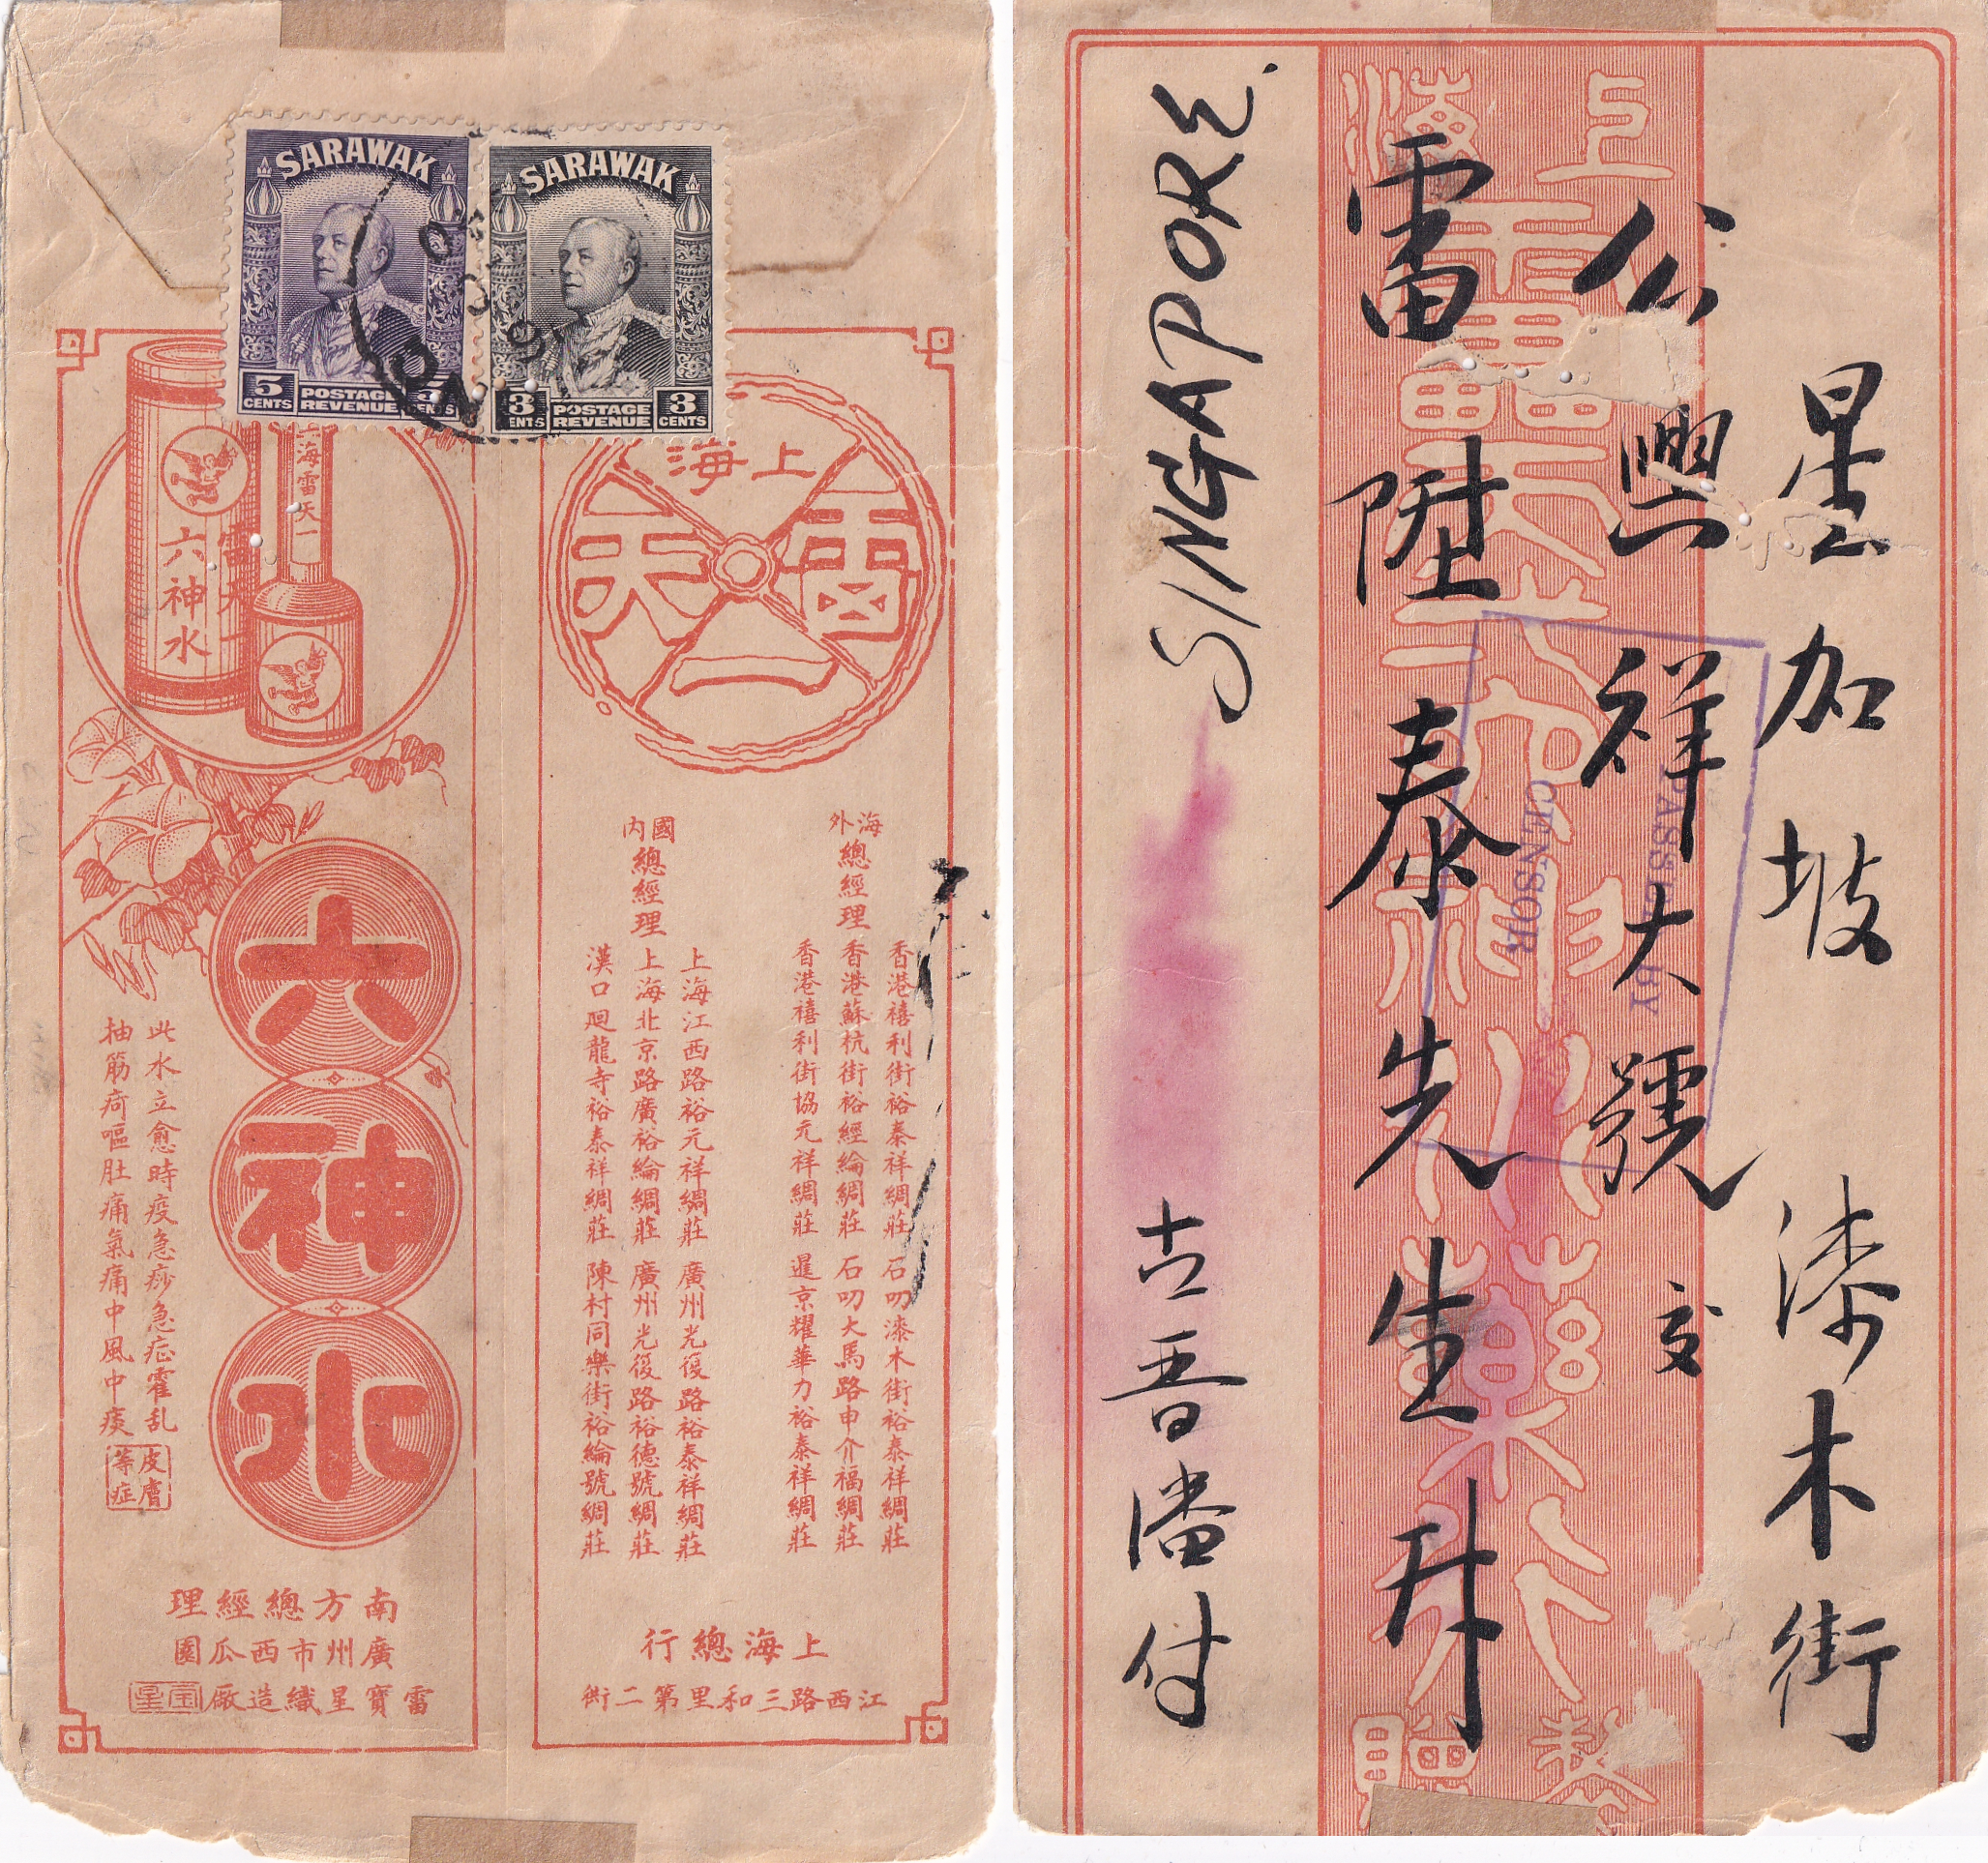 SARAWAK
5 CENTS
POSTAGE REVENUE
CENTS
SARAWAK
3 CENTS
POSTAGE REVENUE
3 CENTS
上海雷天一
六神水
上海
雷天一
六神水
此水立愈時疫急痧急症霍乱
抽筋疴嘔肚痛氣痛中風中痰
皮膚等症
南方總經理
廣州市西瓜園
雷寶星織造廠
海外總經理
香港禧利街裕泰祥綢莊 石叻漆木街裕泰祥綢莊
香港蘇杭街裕經綸綢莊 石叻大馬路申介福綢莊
香港禧利街協元祥綢莊 暹京耀華力裕泰祥綢莊
國內總經理
上海江西路裕元祥綢莊 廣州光復路裕泰祥綢莊
上海北京路廣裕綸綢莊 廣州光復路裕德號綢莊
漢口廻龍寺裕泰祥綢莊 陳村同樂街裕綸號綢莊
上海總行
江西路三和里第二街
上海
雷天一六神水藥
星加坡 漆木街
公興祥大號 交
雷陞泰先生 升
古晋 付
SINGAPORE.
PASSED BY
CENSOR